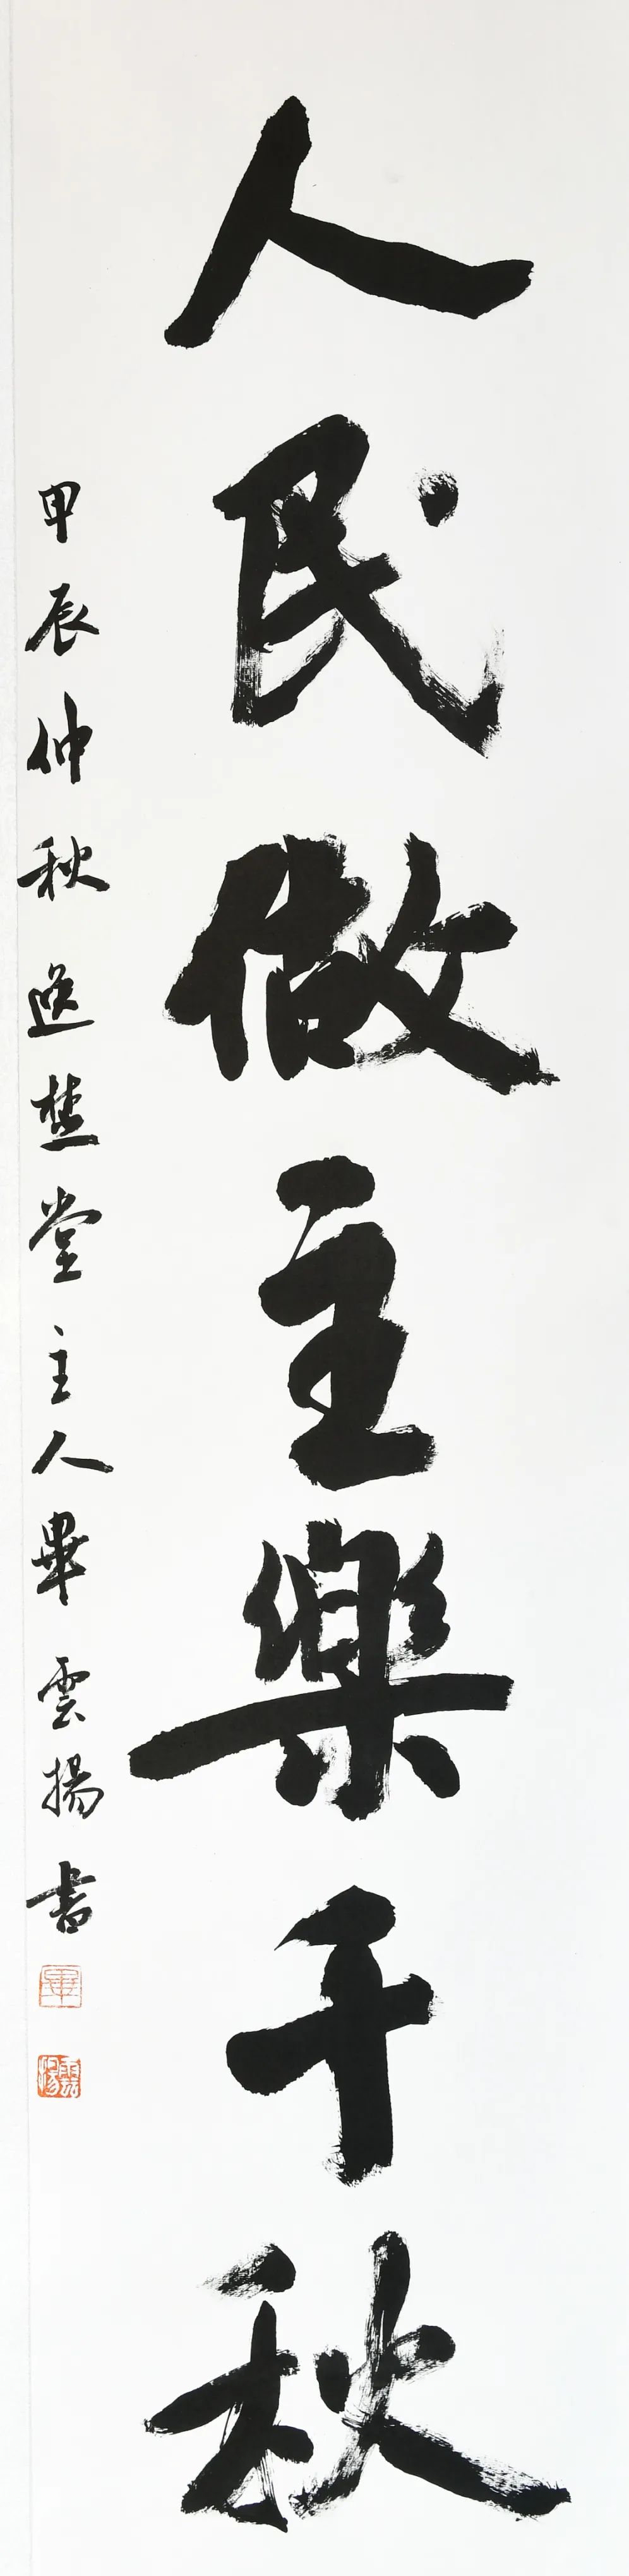 人民做主樂千秋
甲辰仲秋逸楚堂主人畢雲揚書
畢
雲揚